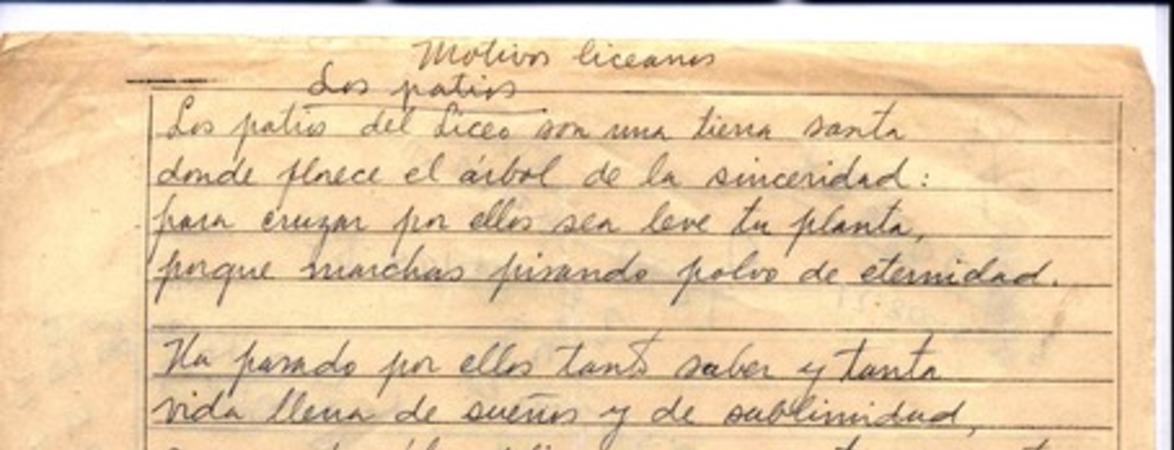 Motivos liceanos
Los patios
Los patios del Liceo son una tierra santa
donde florece el árbol de la sinceridad:
para cruzar por ellos sea leve tu planta,
porque marchas pisando polvo de eternidad.
Ha pasado por ellos tanto saber y tanta
vida llena de sueños y de sublimidad,